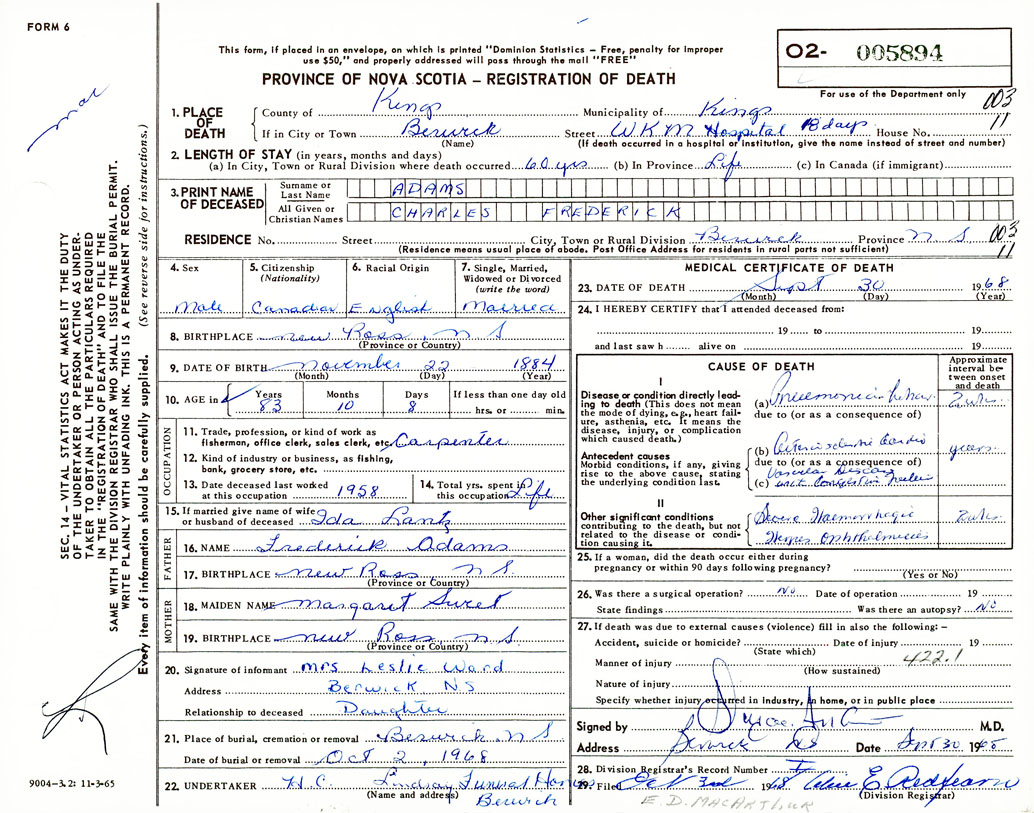 FORM 6
This form, if placed in an envelope, on which is printed "Dominion Statistics – Free, penalty for improper
use $50," and properly addressed will pass through the mail "FREE"
PROVINCE OF NOVA SCOTIA – REGISTRATION OF DEATH
O2- 005894
For use of the Department only
003
11
1. PLACE OF DEATH
County of Kings Municipality of Kings
If in City or Town Berwick Street WKM Hospital 18 days House No.
(Name) (If death occurred in a hospital or institution, give the name instead of street and number)
2. LENGTH OF STAY (in years, months and days)
(a) In City, Town or Rural Division where death occurred 60 yrs (b) In Province Life (c) In Canada (if immigrant)
3. PRINT NAME OF DECEASED
Surname or Last Name ADAMS
All Given or Christian Names CHARLES FREDERICK
RESIDENCE No. Street City, Town or Rural Division Berwick Province N S 003
(Residence means usual place of abode. Post Office Address for residents in rural parts not sufficient) 11
SEC. 14 – VITAL STATISTICS ACT MAKES IT THE DUTY
OF THE UNDERTAKER OR PERSON ACTING AS UNDER-
TAKER TO OBTAIN ALL THE PARTICULARS REQUIRED
IN THE "REGISTRATION OF DEATH" AND TO FILE THE
SAME WITH THE DIVISION REGISTRAR WHO SHALL ISSUE THE BURIAL PERMIT.
WRITE PLAINLY WITH UNFADING INK. THIS IS A PERMANENT RECORD.
Every item of information should be carefully supplied. (See reverse side for instructions.)
4. Sex
Male
5. Citizenship
(Nationality)
Canadian
6. Racial Origin
English
7. Single, Married,
Widowed or Divorced
(write the word)
Married
8. BIRTHPLACE New Ross, N S
(Province or Country)
9. DATE OF BIRTH November 22 1884
(Month) (Day) (Year)
10. AGE in Years Months Days If less than one day old
83 10 8 hrs. or min.
OCCUPATION
11. Trade, profession, or kind of work as
fisherman, office clerk, sales clerk, etc. Carpenter
12. Kind of industry or business, as fishing,
bank, grocery store, etc.
13. Date deceased last worked
at this occupation 1958
14. Total yrs. spent in
this occupation Life
15. If married give name of wife
or husband of deceased Ida Lantz
FATHER
16. NAME Frederick Adams
17. BIRTHPLACE New Ross N S.
(Province or Country)
MOTHER
18. MAIDEN NAME Margaret
19. BIRTHPLACE New Ross, N S
(Province or Country)
20. Signature of informant Mrs Leslie Ward
Address Berwick NS
Relationship to deceased Daughter
21. Place of burial, cremation or removal Berwick, N S
Date of burial or removal Oct 2, 1968
22. UNDERTAKER H.C. Lindsay Funeral Home
(Name and address) Berwick
9004-3.2: 11-3-65
MEDICAL CERTIFICATE OF DEATH
23. DATE OF DEATH Sept 30 1968
(Month) (Day) (Year)
24. I HEREBY CERTIFY that I attended deceased from:
19 to 19
and last saw h alive on 19
CAUSE OF DEATH
Approximate
interval be-
tween onset
and death
I
Disease or condition directly lead-
ing to death (This does not mean
the mode of dying, e.g., heart fail-
ure, asthenia, etc. It means the
disease, injury, or complication
which caused death.)
(a) Pneumonia
due to (or as a consequence of)
Antecedent causes
Morbid conditions, if any, giving
rise to the above cause, stating
the underlying condition last.
(b) Arteriosclerotic Cardio years
due to (or as a consequence of)
Vascular Disease
(c) with Congestive Failure
II
Other significant conditions
contributing to the death, but not
related to the disease or condi-
tion causing it.
Severe Haemorrhagic
Herpes Ophthalmicus
25. If a woman, did the death occur either during
pregnancy or within 90 days following pregnancy?
(Yes or No)
26. Was there a surgical operation? No Date of operation 19
State findings Was there an autopsy? No
27. If death was due to external causes (violence) fill in also the following: –
Accident, suicide or homicide? Date of injury 19
(State which)
Manner of injury 422.1
(How sustained)
Nature of injury
Specify whether injury occurred in industry, in home, or in public place
Signed by M.D.
Address Berwick NS Date Sept 30 1968
28. Division Registrar's Record Number
29. Filed Oct 3rd 1968 E. Redfearn
(Division Registrar)
E. D. MACARTHUR